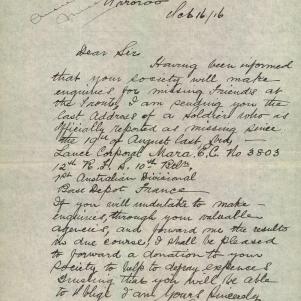 Narrow
Oct 16/16
Dear Sir
Having been informed
that your society will make
enquiries for missing Friends at
the Front, I am sending you the
Last Address of a Soldier who is
Officially reported as missing since
the 19th of August last
Lance Corporal Mara, E.C. No 3803
12th R.F.S. 10th Rein
1st Australian Divisional
Base Depot France
If you will undertake to make
enquiries, through your valuable
agencies, and forward me the results
in due course, I shall be pleased
to forward a donation to your
Society to help to defray expenses
Trusting that you will be able
to oblige I am Yours Sincerely